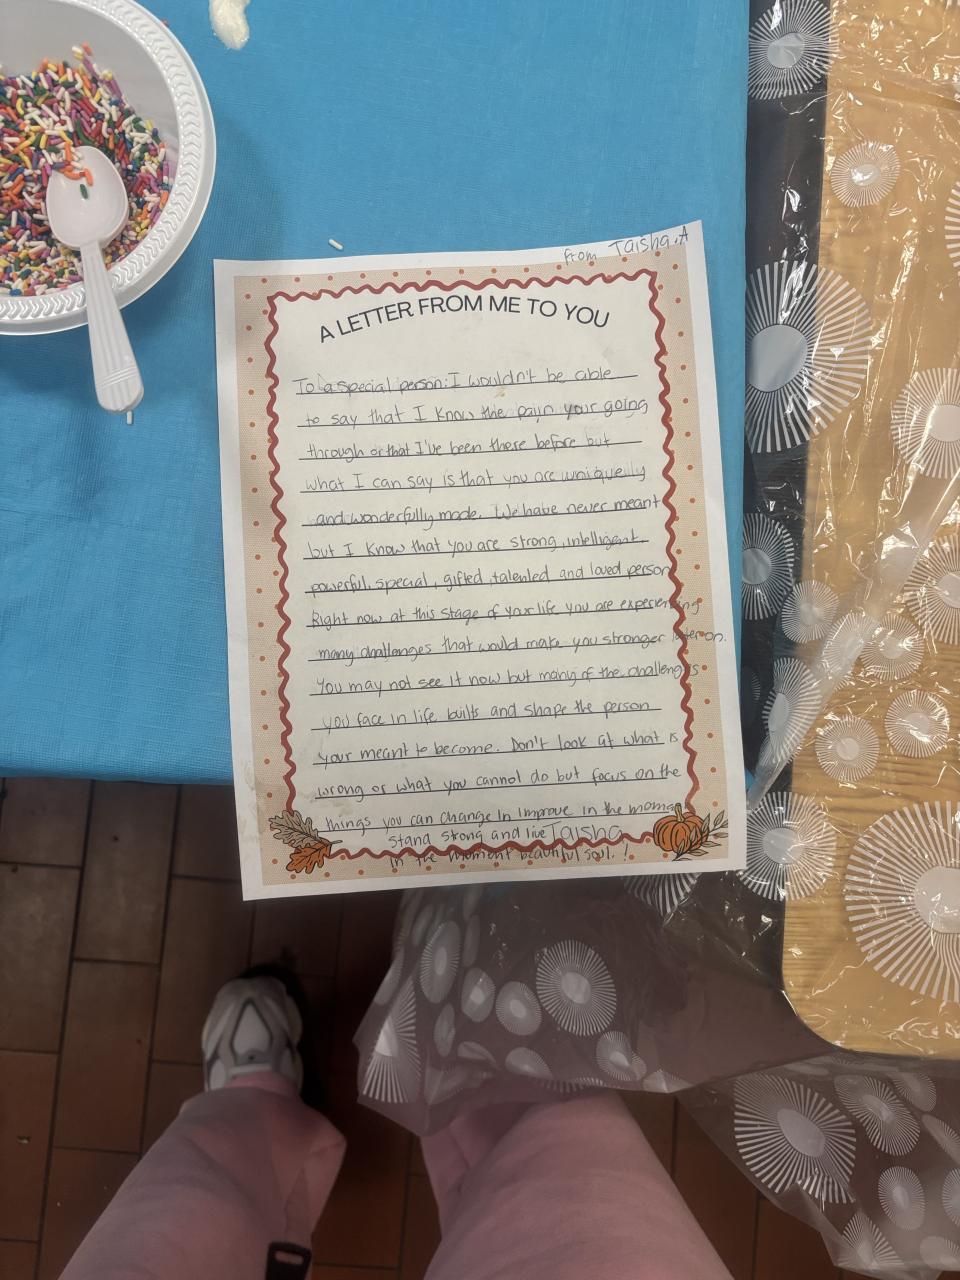 from Taisha.A
A LETTER FROM ME TO YOU
To a special person: I wouldn't be able
to say that I know the pain your going
through or that I've been there before but
what I can say is that you are uniquelly
and wonderfully made. We have never meant
but I know that you are strong, intelligent
powerful, special, gifted, talented and loved person
Right now at this stage of your life you are experiencing
many challenges that would make you stronger later on.
You may not see it now but many of the challenges
you face in life builts and shape the person
your meant to become. Don't look at what is
wrong or what you cannot do but focus on the
things you can change In Improve in the moment
Stand Strong and live Taisha
In the moment beautiful soul. !